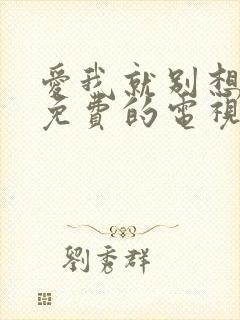 愛我就別想
免費的電視
劉秀群